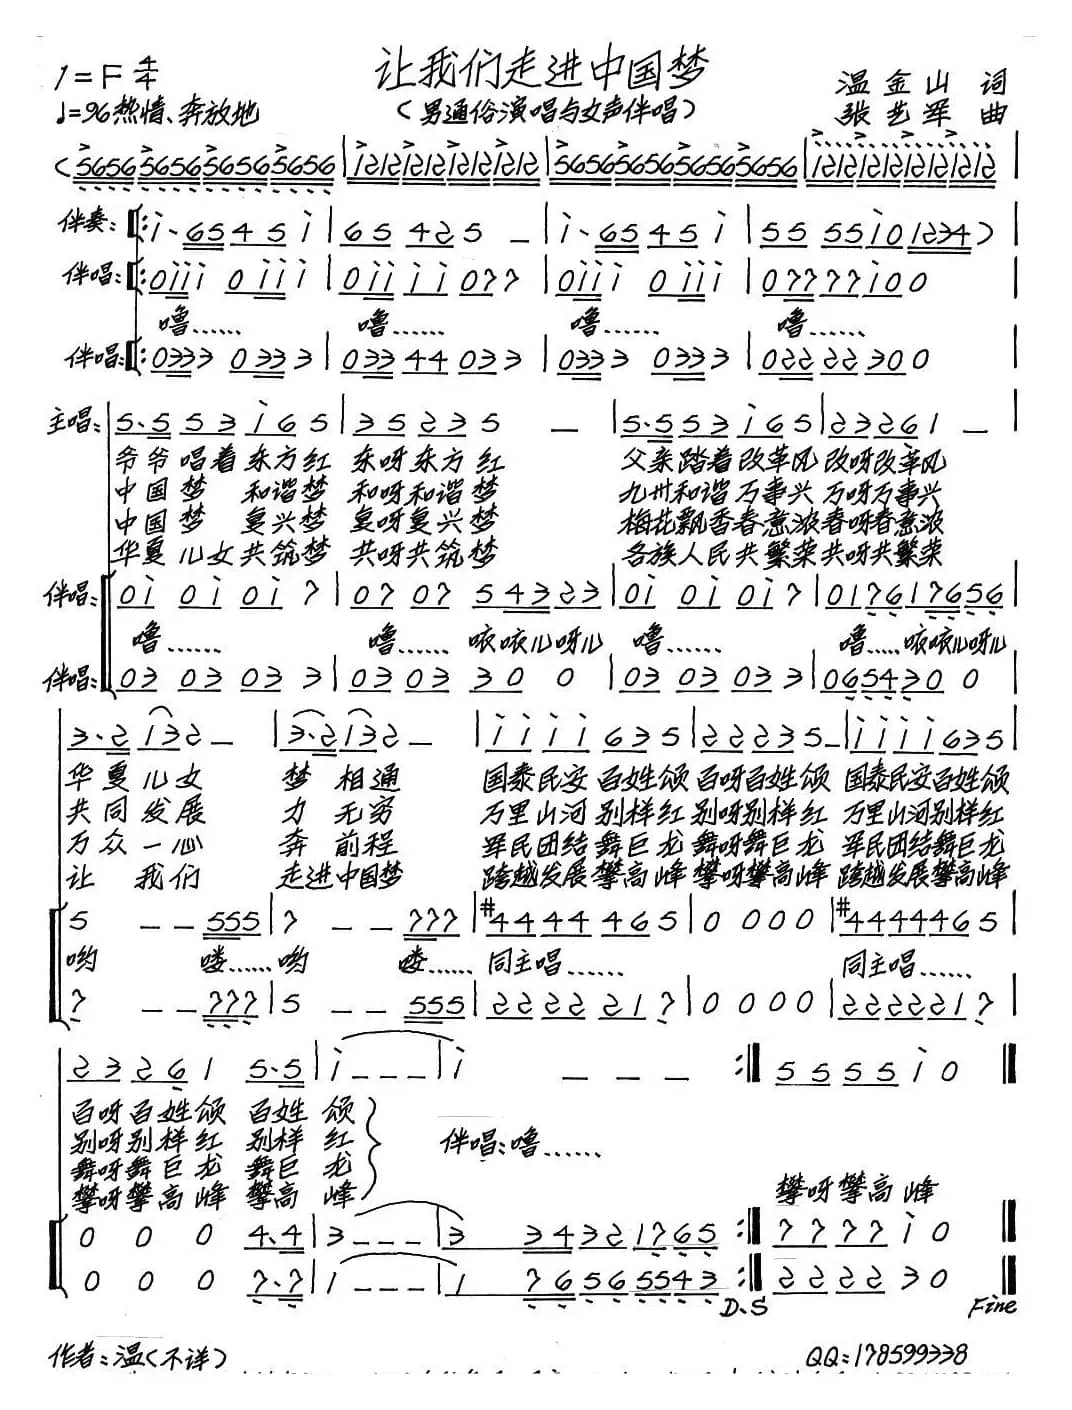 让我们走进中国梦
1=F 4/4
温金山 词
♩=96热情、奔放地
(男通俗演唱与女声伴唱)
张艺军 曲
(5656 5656 5656 5656 | i2i2 i2i2 i2i2 i2i2 | 5656 5656 5656 5656 | i2i2 i2i2 i2i2 i2i2 |
伴奏: i·65 4 5 i | 65 42 5 － | i·65 4 5 i | 55 55 i0 1234) |
伴唱: 0iii 0 iii | 0ii ii 077 | 0iii 0 iii | 0777 77 i00
噜…… 噜…… 噜…… 噜……
伴唱: 0333 0333 | 033 44 033 | 0333 0333 | 0222 22 300
主唱: 5·5 53 i 65 | 35 23 5 － | 5·5 53 i 65 | 23 26 1 －
爷爷 唱着 东方红 东呀东方红 父亲踏着改革风 改呀改革风
中国梦 和谐梦 和呀和谐梦 九州和谐万事兴 万呀万事兴
中国梦 复兴梦 复呀复兴梦 梅花飘香春意浓 春呀春意浓
华夏儿女共筑梦 共呀共筑梦 各族人民共繁荣 共呀共繁荣
伴唱: 0i 0i 0i 7 | 07 07 5 43 23 | 0i 0i 0i 7 | 0176 1765 6 |
噜…… 噜…… 咴咴儿呀儿 噜…… 噜…… 咴咴儿呀儿
伴唱: 03 03 03 3 | 03 03 30 0 | 03 03 03 3 | 06543 0 0 |
3·2 132 － | 3·2 132 － | i i i i 635 | 2 2 2 35 － | i i i i 635 |
华夏儿女 梦相通 国泰民安百姓颂 百呀百姓颂 国泰民安百姓颂
共同发展 力无穷 万里山河别样红 别呀别样红 万里山河别样红
万众一心 奔前程 军民团结舞巨龙 舞呀舞巨龙 军民团结舞巨龙
让我们 走进中国梦 跨越发展攀高峰 攀呀攀高峰 跨越发展攀高峰
5 － － 555 | 7 － － 777 | #44 44 465 | 0 0 0 0 | #44 44 465 |
哟 喽……哟 喽…… 同主唱…… 同主唱……
7 － － 777 | 5 － － 555 | 22 22 21 7 | 0 0 0 0 | 22 22 21 7 |
23 26 1 5·5 | i － － － | i － － － :‖ 55 55 i 0 ‖
百呀百姓颂 百姓颂
别呀别样红 别样红
舞呀舞巨龙 舞巨龙
攀呀攀高峰 攀高峰
伴唱:噜……
攀呀攀高峰
0 0 0 4·4 | 3 － － － | 3 34 32 17 65 :‖ 77 77 i 0
0 0 0 7·7 | 1 － － － | 1 76 56 55 43 :‖ 22 22 3 0
D.S
Fine
作者:温(不详)
QQ:178599338